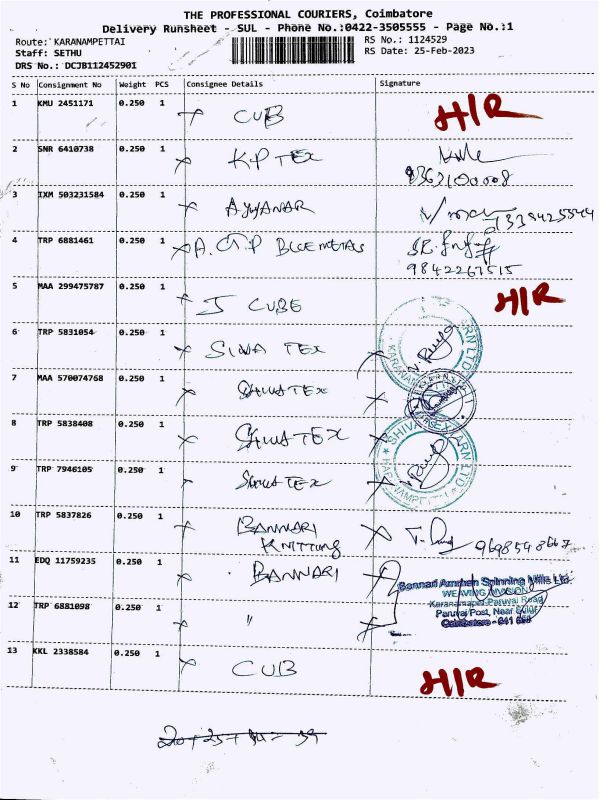 THE PROFESSIONAL COURIERS, Coimbatore
Delivery Runsheet - SUL - Phone No.:0422-3505555 - Page No.:1
Route: KARANAMPETTAI
RS No.: 1124529
Staff: SETHU
RS Date: 25-Feb-2023
DRS No.: DCJB112452901
S No Consignment No Weight PCS Consignee Details Signature
1 KMU 2451171 0.250 1 CUB H/R
2 SNR 6410738 0.250 1 K.P TEX
9363100008
3 IXM 503231584 0.250 1 AYYANAR
4 TRP 6881461 0.250 1 A.G.P BLUE METALS
9842267515
5 MAA 299475787 0.250 1 J CUBE H/R
6 TRP 5831054 0.250 1 SIVA TEX
7 MAA 570074768 0.250 1 SHIVATEX
8 TRP 5838408 0.250 1 SHIVATEX
9 TRP 7946105 0.250 1 SHIVATEX
10 TRP 5837826 0.250 1 BANNARI KNITTING
11 EDQ 11759235 0.250 1 BANNARI
Bannari Amman Spinning Mills Ltd.
WEAVING DIVISION
Paruvai Post, Near Sulur
12 TRP 6881098 0.250 1 "
13 KKL 2338584 0.250 1 CUB H/R